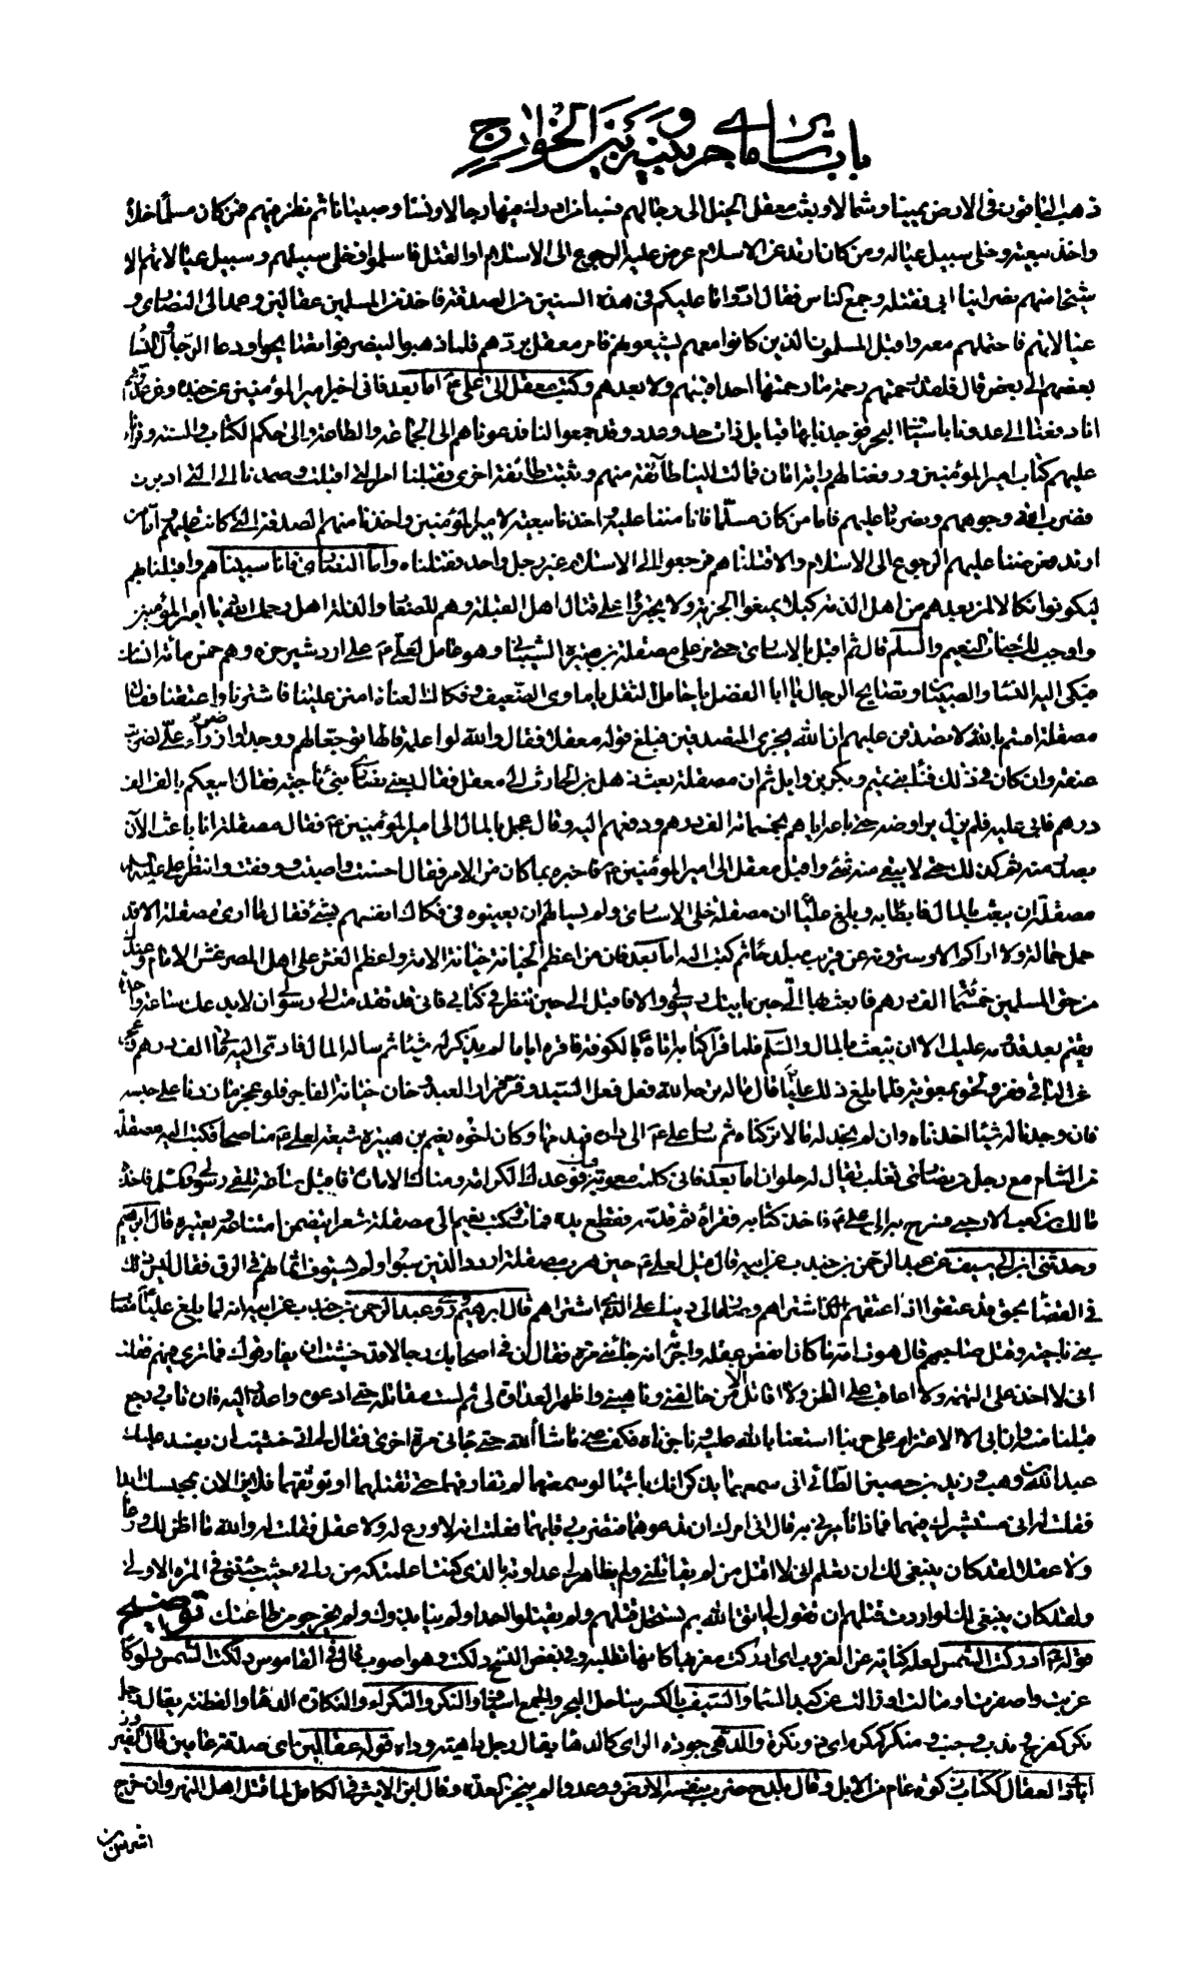 باب سائر ما جرى بينه وبين الخوارج
ذهب الباقون في الارض يمينا وشمالا وبعث معقل الخيل الى رحالهم فسبا من ادرك فيها رجالا ونساء وصبيانا ثم نظر فيهم فمن كان مسلما خلاه
واخذ بيعته وخلى سبيل عياله ومن كان ارتد عن الاسلام عرض عليه الرجوع الى الاسلام او القتل فاسلموا فخلى سبيلهم وسبيل عيالاتهم الا
شيخا منهم نصرانيا ابى فقتله وجمع الناس فقال ادوا ما عليكم في هذه السنين من الصدقة فاخذ من المسلمين عقالين وعمد الى النصارى و
عيالاتهم فاحتملهم معه واقبل المسلمون الذين كانوا معهم يشيعونهم فامر معقل بردهم فلما ذهبوا لينصرفوا تصايحوا ودعا الرجال والنساء
بعضهم الى بعض قال فلقد رحمتهم رحمة ما رحمتها احدا قبلهم ولا بعدهم وكتب معقل الى علي ع اما بعد فاني اخبر امير المؤمنين عن جنده وعن عدوه
انا دفعنا الى عدونا باسياف البحر فوجدنا بها قبايل ذات حد وعدد وقد جمعوا لنا فدعوناهم الى الجماعة والطاعة والى حكم الكتاب والسنة وقرأنا
عليهم كتاب امير المؤمنين ورفعنا لهم راية امان فمالت الينا طائفة منهم وثبتت طائفة اخرى فقبلنا امر التي اقبلت وصمدنا الى التي ادبرت
فضرب الله وجوههم ونصرنا عليهم فاما من كان مسلما فانا مننا عليه واخذنا بيعته لامير المؤمنين واخذنا منهم الصدقة التي كانت عليهم واما من
ارتد فعرضنا عليهم الرجوع الى الاسلام والا قتلناهم فرجعوا الى الاسلام غير رجل واحد فقتلناه واما النصارى فانا سبيناهم واقبلنا بهم
ليكونوا نكالا لمن بعدهم من اهل الذمة كيلا يمنعوا الجزية ولا يجترؤا على قتال اهل القبلة وهم للصغار والذلة اهل رحمك الله يا امير المؤمنين
واوجب لك جنات النعيم والسلم قال ثم اقبل بالاسارى حتى مر على مصقلة بن هبيرة الشيباني وهو عامل لعلي ع على اردشير خره وهم خمس مائة انسان
فبكى اليه النساء والصبيان وتصايح الرجال يا ابا الفضل يا حامل الثقل يا ماوى الضعيف وفكاك العناة امنن علينا فاشترنا واعتقنا فقال
مصقلة اقسم بالله لا تصدقن عليهم ان الله يجزي المتصدقين فبلغ قوله معقلا فقال والله لو اعلمه قالها توجعا لهم ووجدا وازراء علي لضربت
عنقه وان كان في ذلك فناء بني تميم وبكر بن وايل ثم ان مصقلة بعث ذهل بن الحارث الى معقل فقال بعني نصارى بني ناجية فقال ابيعكم بالف الف
درهم فابى عليه فلم يزل يراوضه حتى باعه اياهم بخمسمائة الف درهم ودفعهم اليه وقال عجل بالمال الى امير المؤمنين ع فقال مصقلة انا باعث الآن
بصدر منه ثم كذلك حتى لا يبقى منه شئ واقبل معقل الى امير المؤمنين ع فاخبره بما كان من الامر فقال احسنت واصبت ووفقت وانتظر علي عليه السلم
مصقلة ان يبعث بالمال فابطأ به وبلغ عليا ان مصقلة خلى الاسارى ولم يسالهم ان يعينوه في فكاك انفسهم بشئ فقال ما ارى مصقلة الا قد
حمل حمالة ولا اراكم الا سترونه عن قريب مبلدحا ثم كتب اليه اما بعد فان من اعظم الخيانة خيانة الامة واعظم الغش على اهل المصر غش الامام وعندك
من حق المسلمين خمسمائة الف درهم فابعث بها الي حين ياتيك رسولي والا فاقبل الي حين تنظر في كتابي فاني قد تقدمت الى رسولي ان لا يدعك ساعة واحدة
تقيم بعد قدومه عليك الا ان تبعث بالمال والسلم فلما قرأ كتابه اتاه بالكوفة فاقره اياما لم يذكر له شيئا ثم ساله المال فادى اليه مائتي الف درهم وعجز
عن الباقي ففر ولحق بمعوية فلما بلغ ذلك عليا قال ماله ترحه الله فعل فعل السيد وفر فرار العبد وخان خيانة الفاجر فلو عجز ما زدنا على حبسه
فان وجدنا له شيئا اخذناه وان لم نجد له مالا تركناه ثم سار علي ع الى داره فهدمها وكان اخوه نعيم بن هبيرة شيعة لعلي ع مناصحا فكتب اليه مصقلة
من الشام مع رجل من نصارى تغلب يقال له حلوان اما بعد فاني كلمت معوية فيك فوعدك الكرامة ومناك الامارة فاقبل ساعة تلقى رسولي والسلم فاخذه
مالك بن كعب الارحبي فسرح به الى علي ع فاخذ كتابه فقرأه ثم قدمه فقطع يده فمات فكتب نعيم الى مصقلة شعرا يتضمن امتناعه وتعييره قال ابرهيم
وحدثني ابن ابي سيف عن عبد الرحمن بن جندب عن ابيه قال قيل لعلي ع حين هرب مصقلة اردد الذين سبوا ولم تستوف اثمانهم في الرق فقال ليس ذلك
في القضاء بحق قد عتقوا اذ اعتقهم الذي اشتراهم وصار مالي دينا على الذي اشتراهم قال ابرهيم وروي عبد الرحمن بن جندب عن ابيه انه لما بلغ عليا مصاب
بني ناجية وقتل صاحبهم قال هوت امه ما كان انقص عقله واجرأه انه جاءني مرة فقال ان في اصحابك رجالا قد خشيت ان يفارقوك فما ترى فيهم فقلت
اني لا اخذ على التهمة ولا اعاقب على الظن ولا اقاتل الا من خالفني وناصبني واظهر العداوة لي ثم لست مقاتله حتى ادعوه واعذر اليه فان تاب ورجع
قبلنا منه وان ابى الا الاعتزام على حربنا استعنا بالله عليه وناجزناه فكف عني ما شاء الله حتى جاءني مرة اخرى فقال لي اني خشيت ان يفسد عليك
عبد الله بن وهب وزيد بن حصين الطائي اني سمعتهما يذكرانك باشياء لو سمعتهما لم تفارقهما حتى تقتلهما او توثقهما فلا يزالان بمحبسك ابدا
فقلت له اني مستشيرك فيهما فماذا تأمرني به قال اني امرك ان تدعو بهما فتضرب رقابهما فعلمت انه لا ورع له ولا عقل فقلت له والله ما اظن لك ورعا
ولا عقلا لقد كان ينبغي لك ان تعلم اني لا اقتل من لم يقاتلني ولم يظاهر لي عداوته بالذي كنت اعلمتكه من رائي حيث جئتني في المرة الاولى
ولقد كان ينبغي لك لو اردت قتلهم ان تقول لي اتق الله بم تستحل قتلهم ولم يقتلوا احدا ولم ينابذوك ولم يخرجوا من طاعتك توضيح
قوله ع ادركت الشمس لعله كناية عن الغروب اي ادركت مغربها كانها تطلبه وفي بعض النسخ دلكت وهو اصوب قال في القاموس دلكت الشمس دلوكا
غربت واصفرت او مالت او زالت عن كبد السماء والسيف بالكسر ساحل البحر والجمع اسياف والنكر والنكراء والنكارة الدهاء والفطنة يقال رجل
نكر كفرح و ندب وجنب ومنكر كمكرم اي ذو نكرة والدهي جودة الراي كالدهاء يقال رجل داهية وداه قوله عقالين اي صدقة عامين قال الفيروز
آبادي العقال ككتاب زكوة عام من الابل وقال بلدح ضرب بنفسه الارض ووعد ولم ينجز العدة وقال ابن الاثير في الكامل لما قتل اهل النهروان خرج
اشرس بن